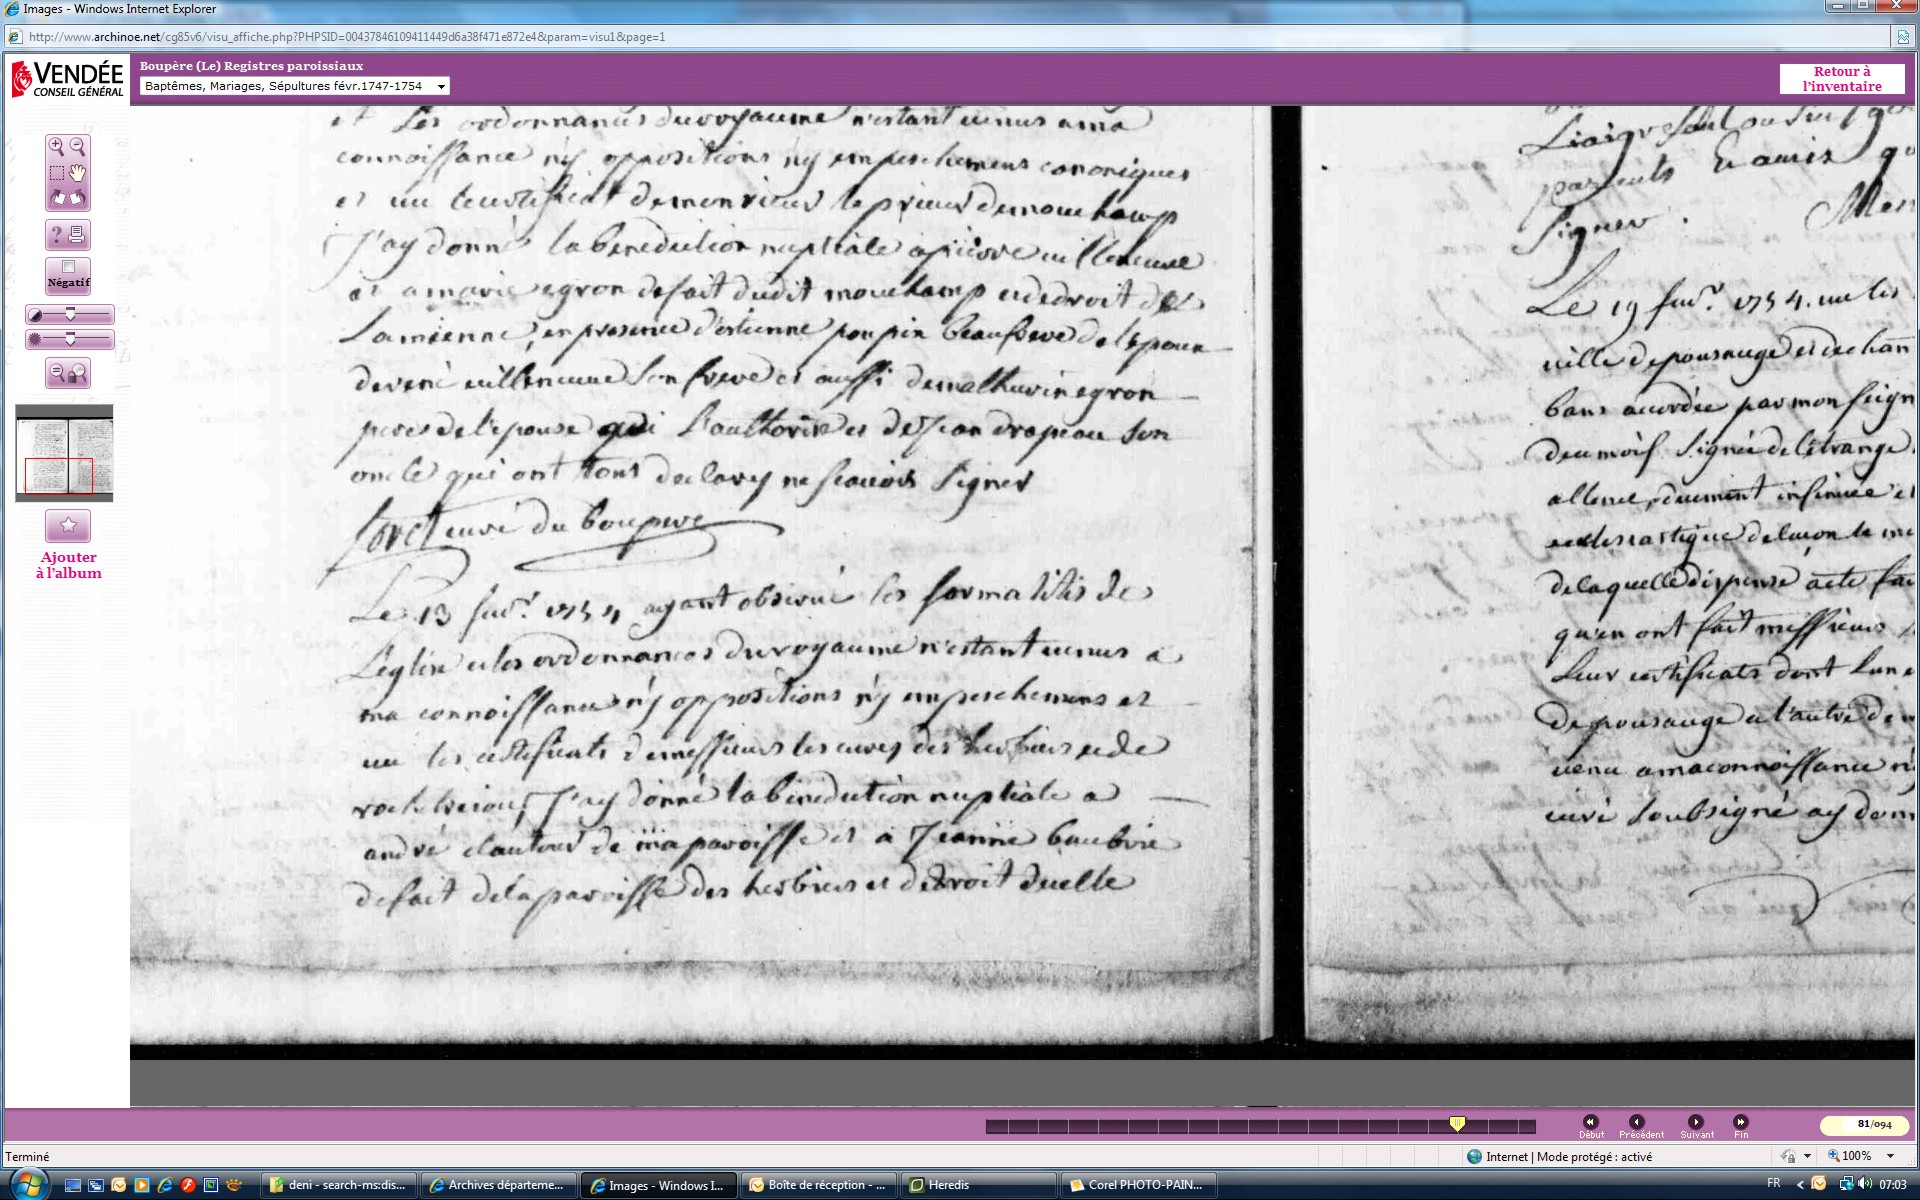 Images - Windows Internet Explorer
http://www.archinoe.net/cg85v6/visu_affiche.php?PHPSID=00437846109411449d6a38f471e872e4&param=visu1&page=1
VENDÉE
CONSEIL GÉNÉRAL
Boupère (Le) Registres paroissiaux
Baptêmes, Mariages, Sépultures févr.1747-1754
Retour à
l'inventaire
Négatif
Ajouter
à l'album
et Les ordonnances du royaume n'estant venus a ma
connoissance n'y oppositions n'y empeschemens canoniques
et vu le certificat de monsieur le prieur de mouchamp
J'ay donné la benediction nuptiale a pierre villeneuve
et a marie egron de fait dudit mouchamp et de droit de
La mienne, en presence d'estienne poupin beaufrere de l'epoux
de rené villeneuve son frere et aussi de mathurin egron
pere de l'epouse qui L'authorise et de Jean drapeau son
oncle qui ont tous declaré ne scavoir signer
curé du boupere
Le 13 fevr. 1754 ayant observé les formalités de
L'eglise et les ordonnances du royaume n'estant venus a
ma connoissance n'y oppositions n'y empeschemens et
vu les certificats de messieurs les curés des herbiers et de
J'ay donné la benediction nuptiale a
andré clautour de ma paroisse et a Jeanne
de fait de la paroisse des herbiers et de droit d'icelle
parents Et amis
signer.
Le 19 fevr. 1754. vu les
ville de pousauge et de chan
bans accordée par mon seign
du mois signée de létrange
allence, duement insinuée et
ecclesiastique de luçon le
de laquelle dispense acte
qu'en ont fait messieurs
Leur certificats dont l'un
De pousauge et l'autre de
venu a ma connoissance n'y
curé soubsigné ay donn
Début
Précédent
Suivant
Fin
81/094
Terminé
Internet | Mode protégé : activé
100%
deni - search-ms:dis...
Archives départeme...
Images - Windows I...
Boîte de réception - ...
Heredis
Corel PHOTO-PAIN...
FR
07:03